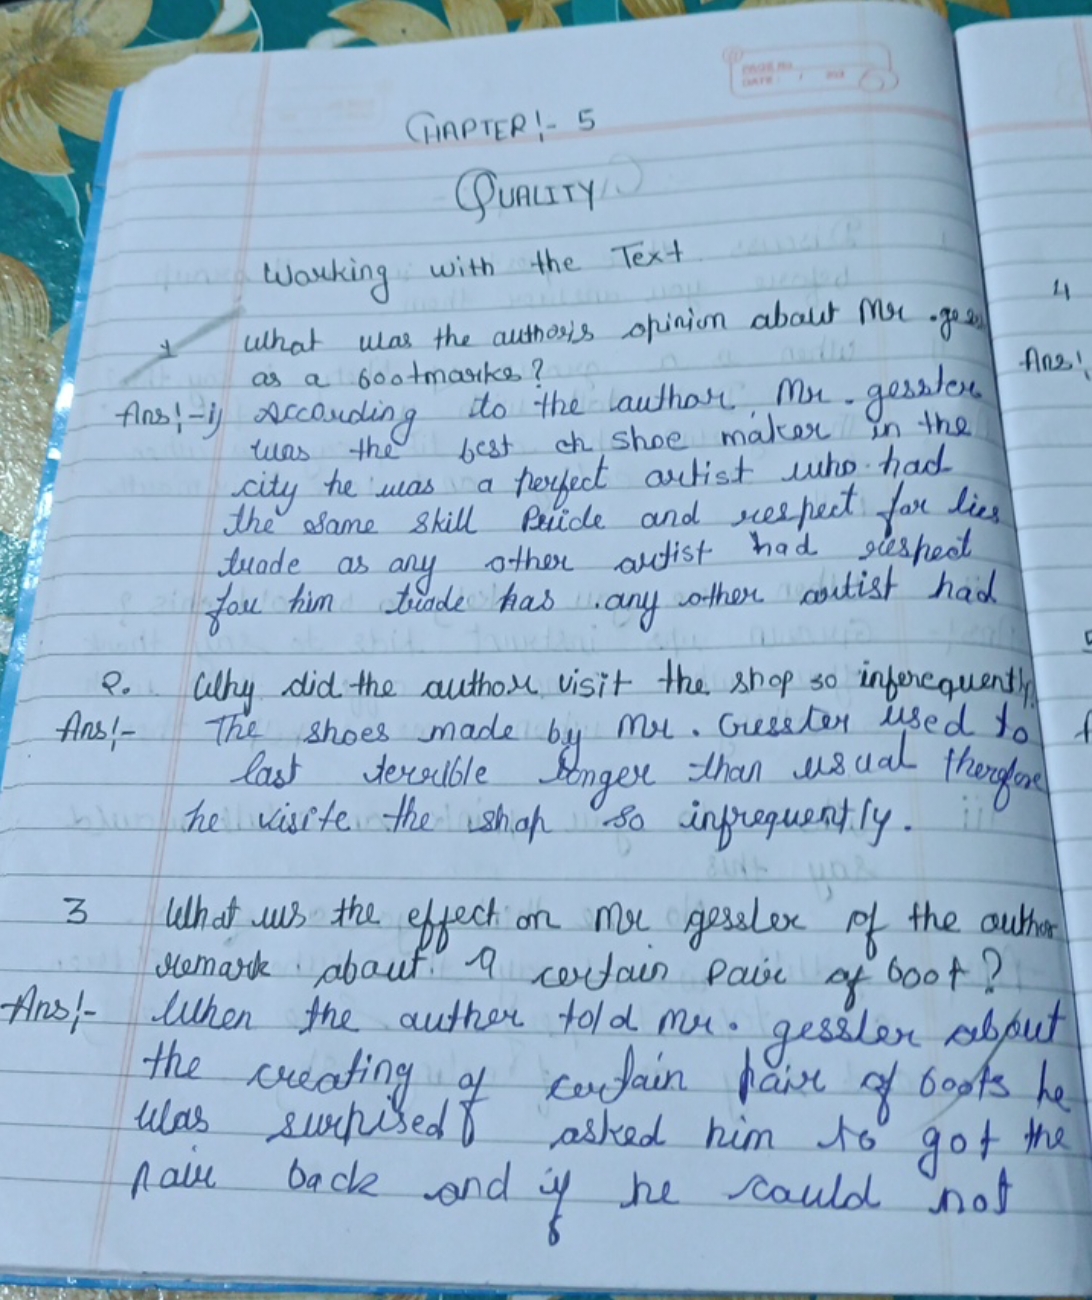 PAGE No.
DATE
CHAPTER!- 5
QUALITY
Working with the Text
1 What was the author's opinion about Mr. ges
as a bootmarke?
Ans!-i) According to the author, Mr. gesster
was the best ch shoe maker in the
city he was a perfect artist who had
the same skill Pride and respect for
trade as any other artist had respect
for him trade has any other artist had
2. Why did the author visit the shop so inferequently.
Ans!- The shoes made by Mr. Gesster used to
last terrible longer than usual therefore
he visite the shop so infrequently.
3 What ws the effect on Mr gessler of the author
remark about a certain Pair of boot?
Ans!- When the auther told Mr. gessler about
the creating of certain pair of boots he
was surprised & asked him to got the
pair back and if he could not
4
Ans!